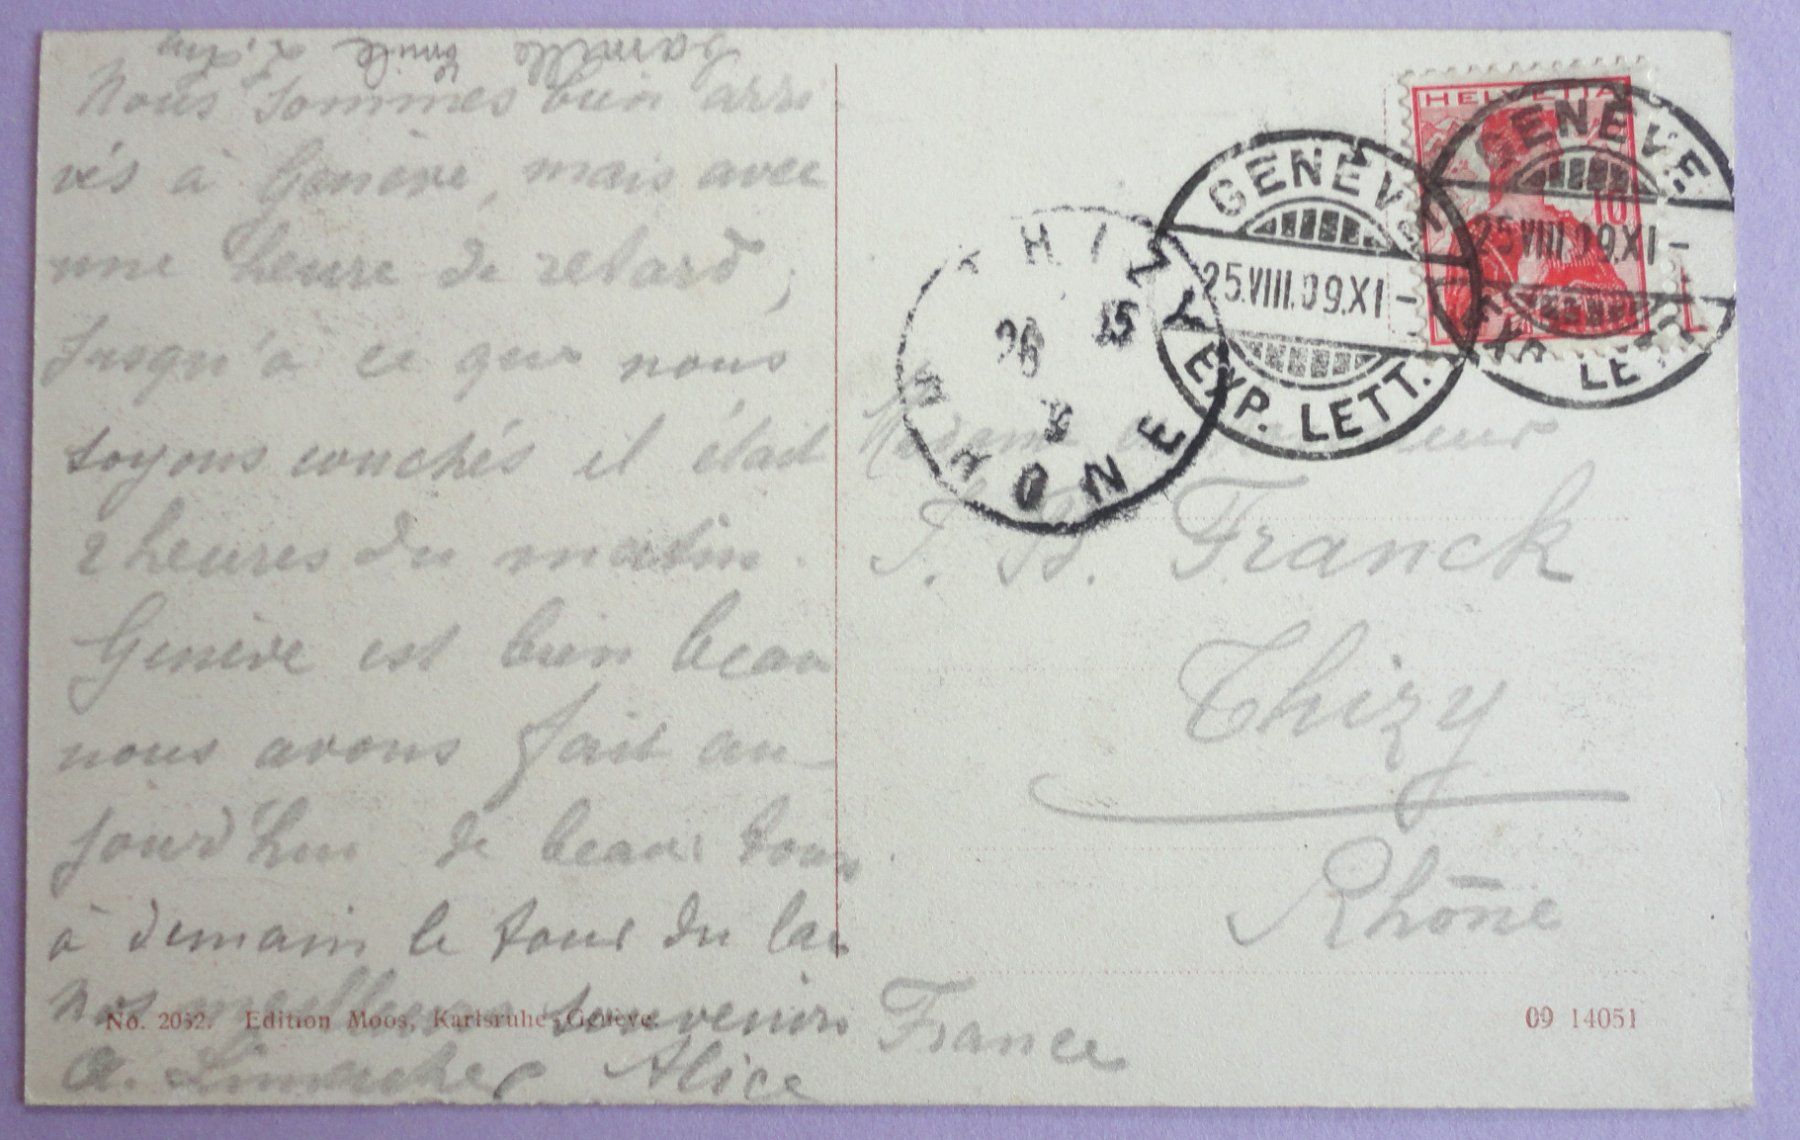 Nous sommes bien arri
vés à Genève, mais avec
une heure de retard,
jusqu'à ce que nous
soyons couchés il était
2 heures du matin.
Genève est bien beau
nous avons fait au-
jourd'hui de beaux tours
à demain le tour du lac
Nos meilleurs souvenirs
Alice
Camille Emile
HELVETIA
10
GENÈVE
25.VIII.09.XI-
EXP. LETT.
GENÈVE
25.VIII.09.XI-
EXP. LETT.
THIZY
26
RHONE
Madame et Monsieur
J. B. Franck
Thizy
Rhône
France
No. 2032. Edition Moos, Karlsruhe-Genève.
09 14051